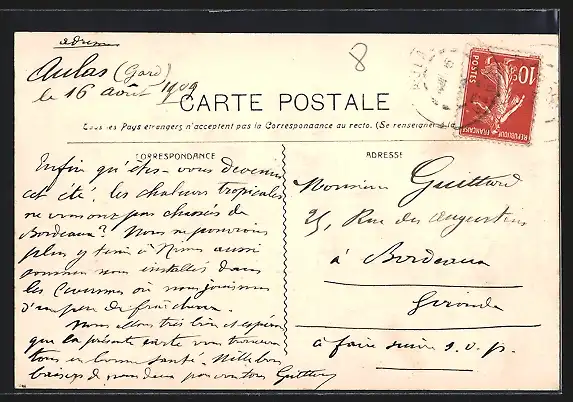 adresse
Aulas (Gard)
le 16 août 1909
8
10c
POSTES
REPUBLIQUE FRANÇAISE
CARTE POSTALE
Tous les Pays étrangers n'acceptent pas la Correspondance au recto. (Se renseigner à la
CORRESPONDANCE
Enfin qu'êtes-vous devenus
cet été. les chaleurs tropicales
ne vous ont pas chassés de
Bordeaux? Nous ne pouvions
plus y tenir à Nimes aussi
sommes nous installés dans
les Cévennes où nous jouissons
d'un peu de fraîcheur.
Nous allons très bien et espérons
que la présente carte vous trouvera
tous en bonne santé. Mille bons
baisers de nous deux pour vous tous Guittard
ADRESSE
Monsieur Guittard
25, Rue des Augustins
à Bordeaux
Gironde
à faire suivre s.v.p.